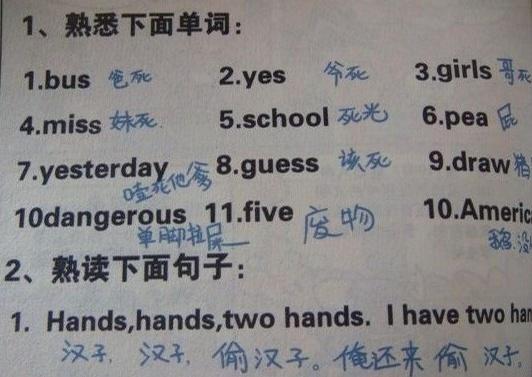 1、熟悉下面单词：
1.bus 爸死 2.yes 爷死 3.girls 哥死
4.miss 妹死 5.school 死光 6.pea 屁
7.yesterday 噎死他爹 8.guess 该死 9.draw 猪
10dangerous 单脚拉屎 11.five 废物 10.Americ
2、熟读下面句子：
1. Hands,hands,two hands. I have two han
汉子，汉子，偷汉子。俺还来偷汉子.